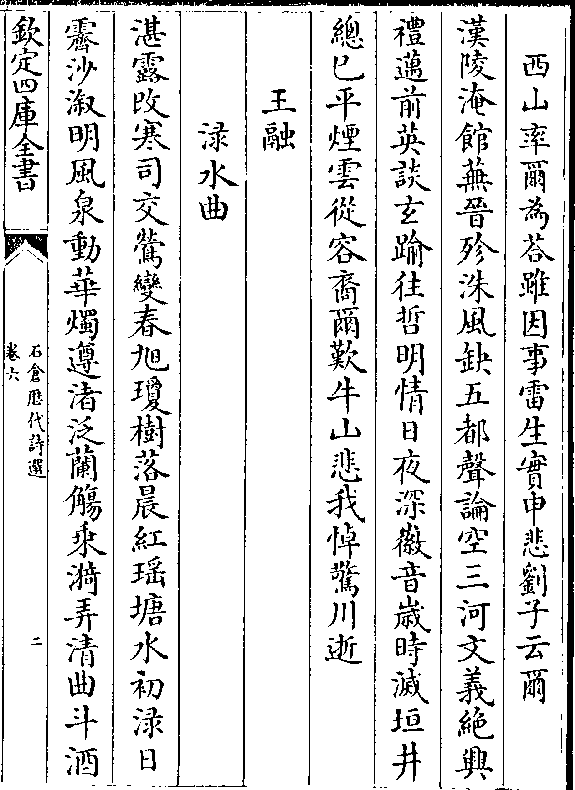 西山率爾為荅雖因事雷生實申悲劉子云爾
漢陵淹館蕪晉殄洙風缺五都聲論空三河文義絶興
禮邁前英談玄踰往哲明情日夜深徽音歲時滅垣井
總已平煙雲從容裔爾歎牛山悲我悼驚川逝
王融
渌水曲
湛露改寒司交鶯變春旭瓊樹落晨紅瑶塘水初渌日
霽沙溆明風泉動華燭遵渚泛蘭觴乗漪弄清曲斗酒
欽定四庫全書
石倉歴代詩選
卷六
二